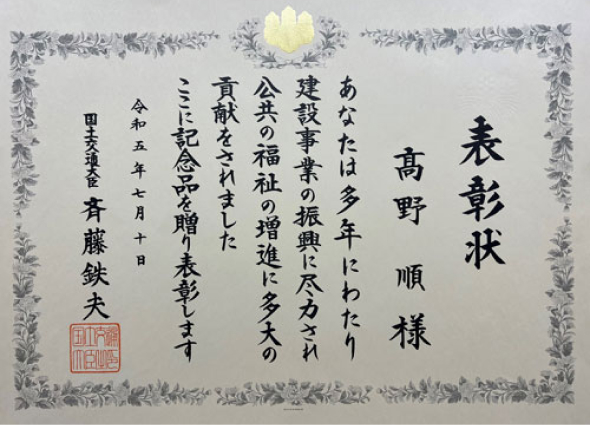 表彰状
髙野 順 様
あなたは多年にわたり
建設事業の振興に尽力され
公共の福祉の増進に多大の
貢献をされました
ここに記念品を贈り表彰します
令和五年七月十日
国土交通大臣 斉藤鉄夫